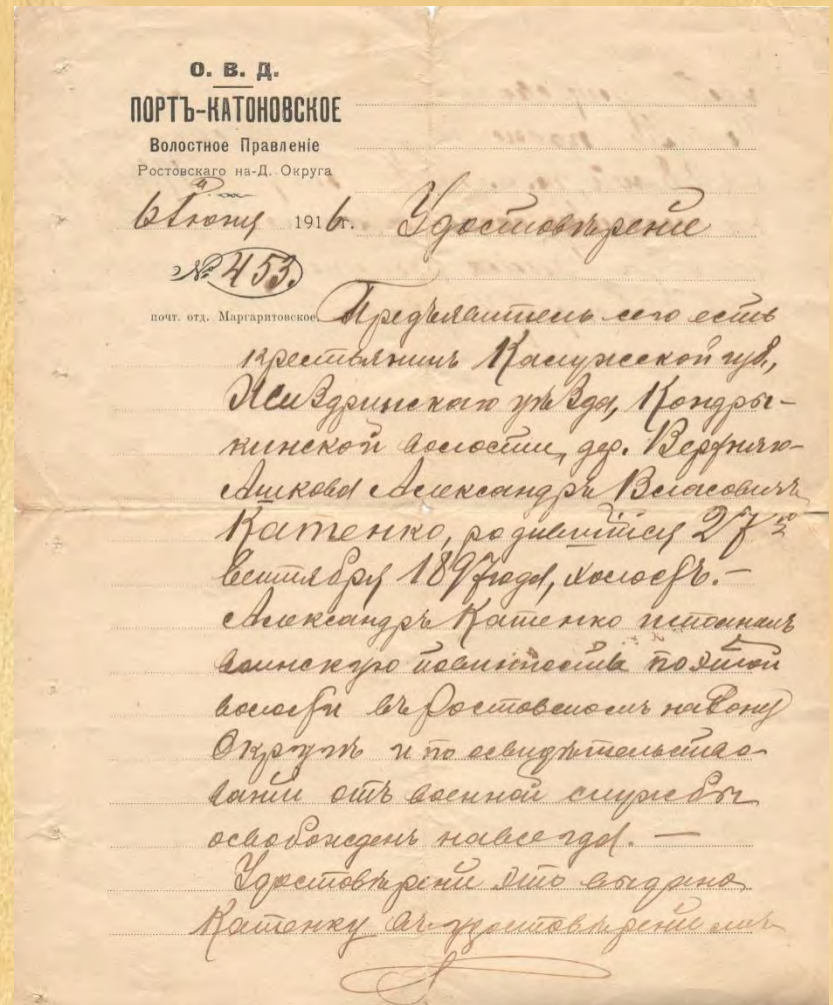 О. В. Д.
ПОРТЪ-КАТОНОВСКОЕ
Волостное Правленіе
Ростовскаго на-Д. Округа
6 Іюня 1916 г. Удостовѣреніе
№ 453.
почт. отд. Маргаритовское. Предъявитель сего есть
крестьянинъ Калужской губ.,
Жиздринскаго уѣзда, Кондры-
кинской волости, дер.
Александръ Власовичъ
Катенко, родившійся 27го
Сентября 1897 года, холостъ. —
Александръ Катенко исполнилъ
воинскую повинность по этой
волости въ Ростовскомъ на Дону
Округѣ и по освидѣтельство-
ваніи отъ военной службы
освобожденъ навсегда. —
Удостовѣреніе это выдано
Катенку въ удостовѣреніе